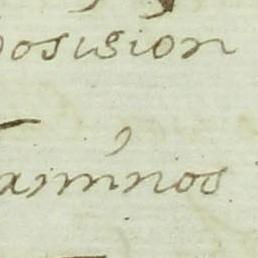 posision
aminos